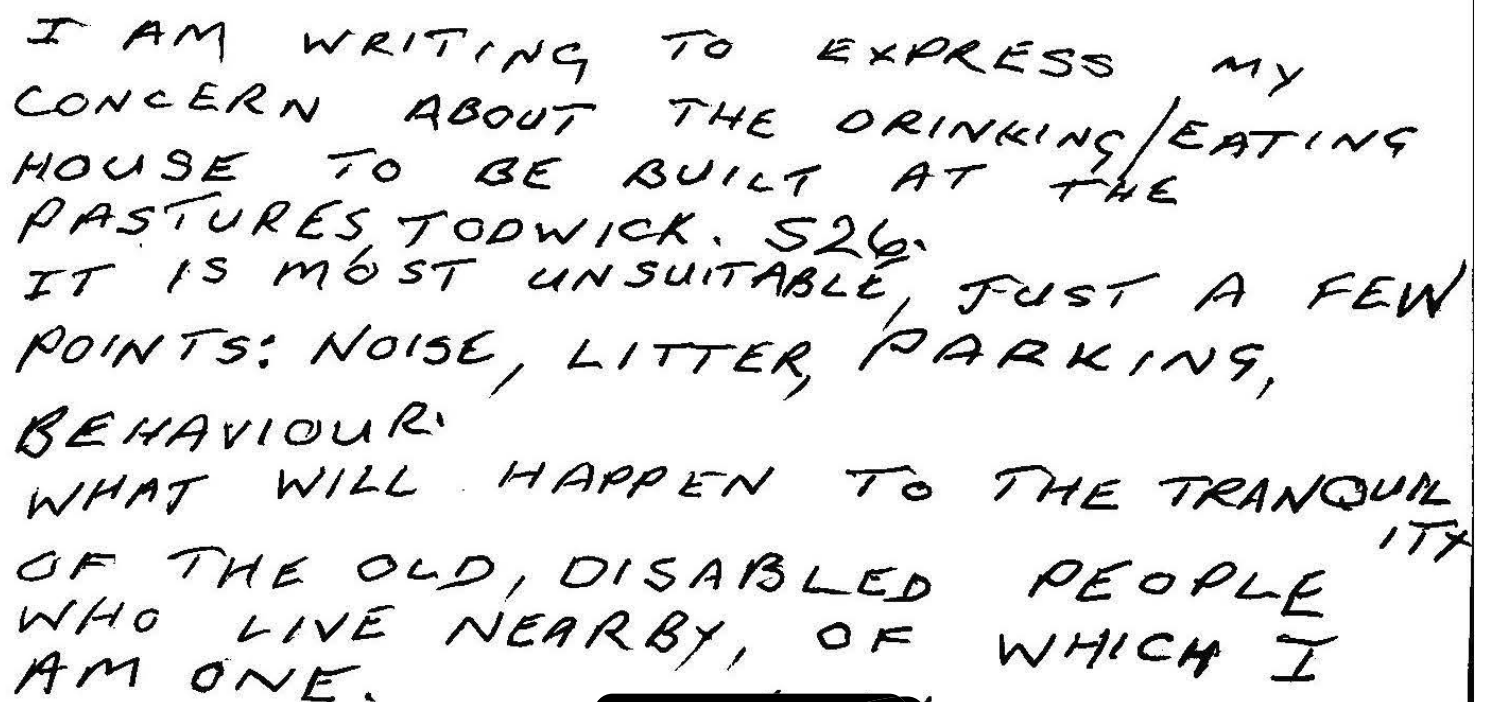 I AM WRITING TO EXPRESS MY
CONCERN ABOUT THE DRINKING/EATING
HOUSE TO BE BUILT AT THE
PASTURES, TODWICK. S26.
IT IS MOST UNSUITABLE, JUST A FEW
POINTS: NOISE, LITTER, PARKING,
BEHAVIOUR.
WHAT WILL HAPPEN TO THE TRANQUIL
ITY
OF THE OLD, DISABLED PEOPLE
WHO LIVE NEARBY, OF WHICH I
AM ONE.